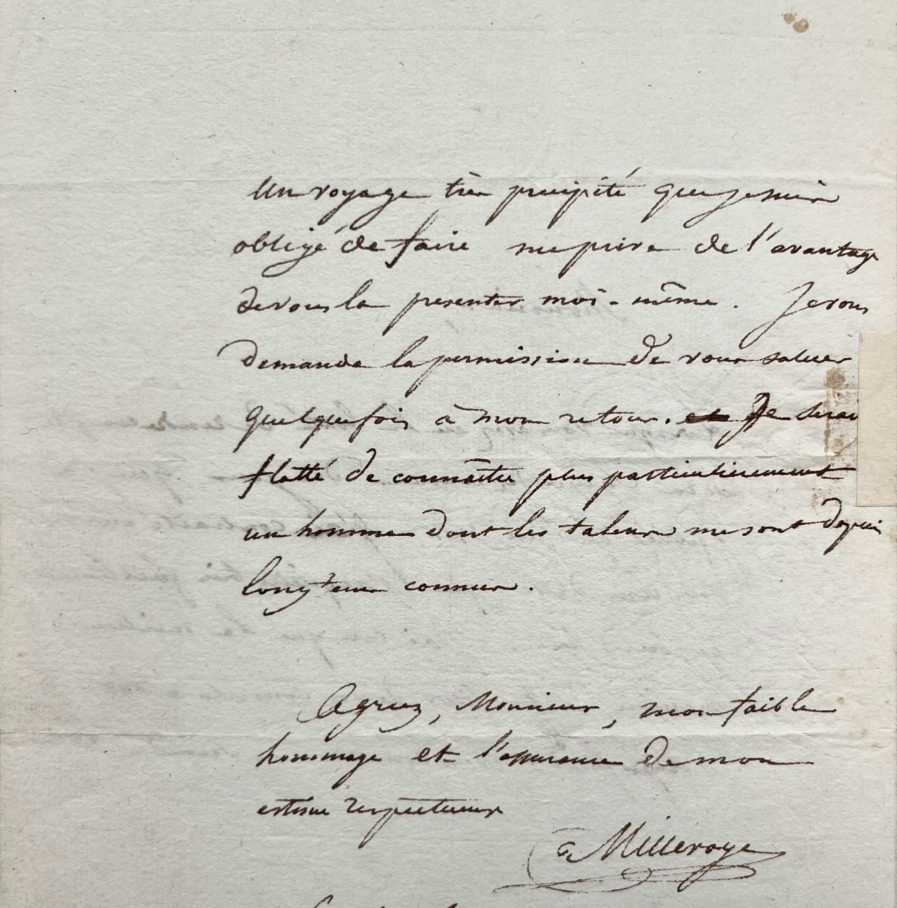 Un voyage très précipité que je suis
obligé de faire me prive de l'avantage
de vous la presenter moi-même. Je vous
demande la permission de vous saluer
quelquefois à mon retour. et Je serai
flatté de connaître plus particulierement
un homme dont les talens me sont depuis
longtems connus.
Agréez, Monsieur, mon faible
hommage et l'assurance de mon
estime respectueuse
Millevoye